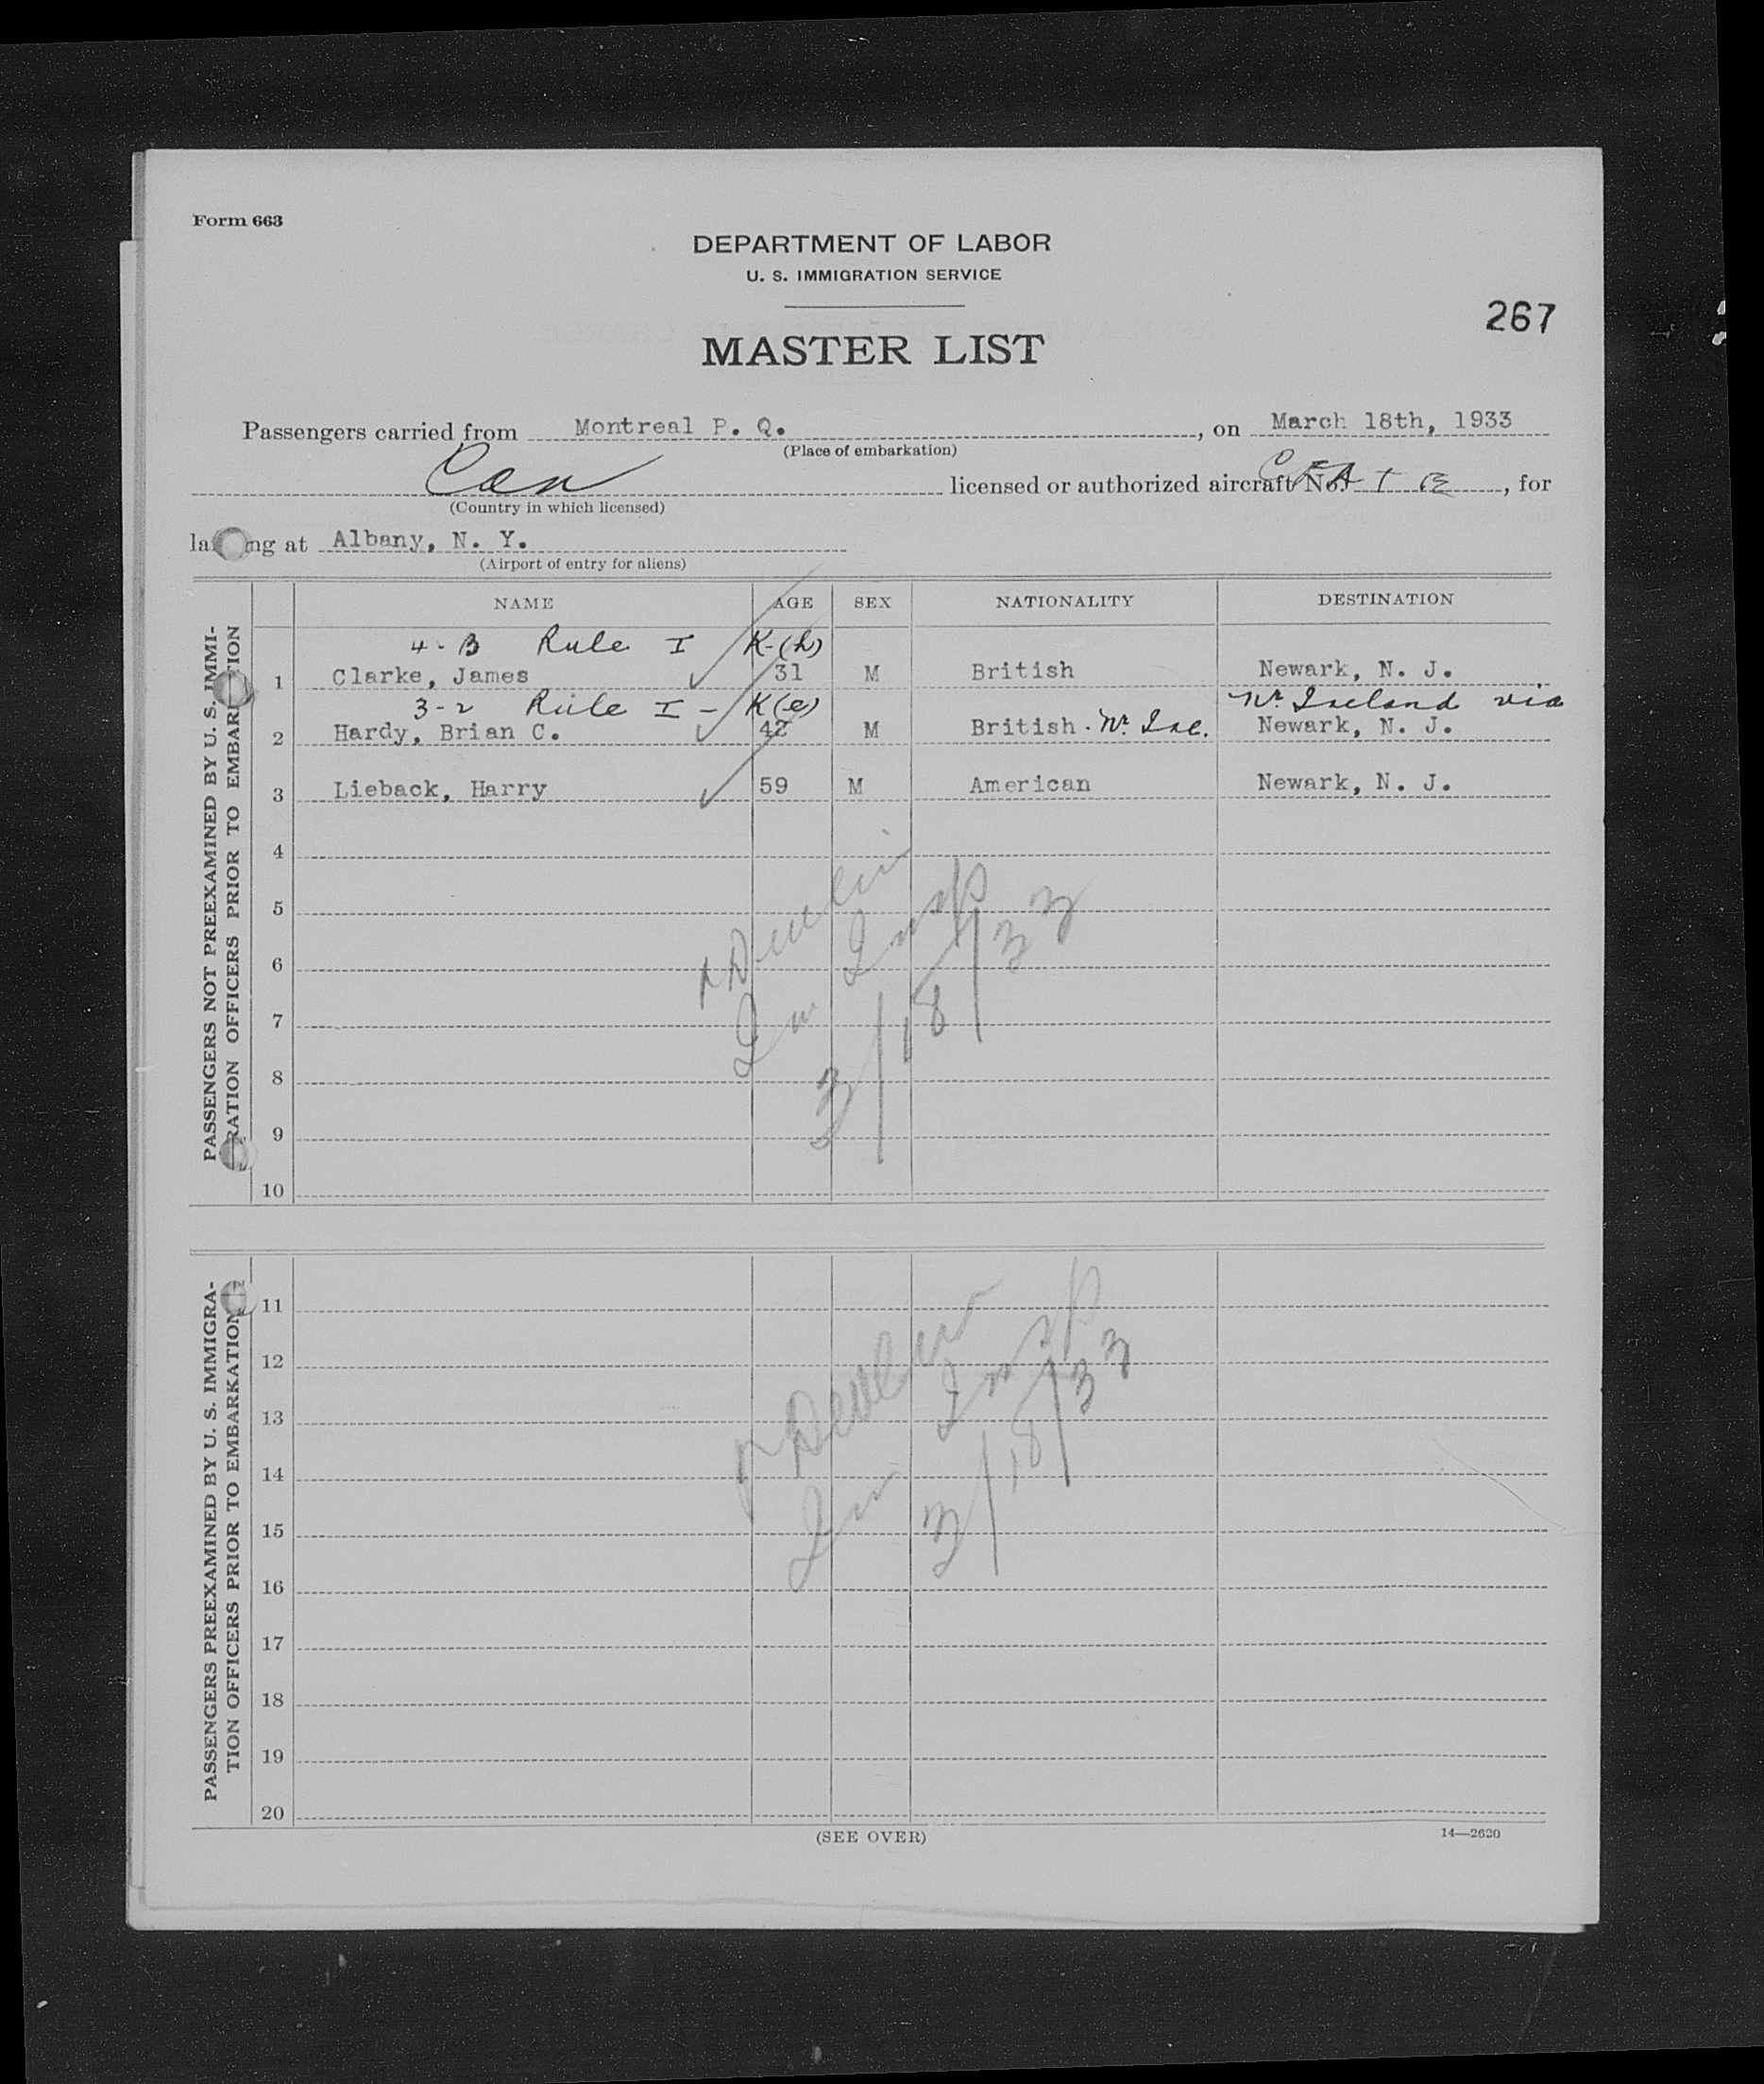 Form 663
DEPARTMENT OF LABOR
U. S. IMMIGRATION SERVICE
267
MASTER LIST
Passengers carried from Montreal P. Q. , on March 18th, 1933
(Place of embarkation)
Can licensed or authorized aircraft No. , for
(Country in which licensed)
ng at Albany, N. Y.
(Airport of entry for aliens)
NAME AGE SEX NATIONALITY DESTINATION
PASSENGERS NOT PREEXAMINED BY U. S. IMMI-
RATION OFFICERS PRIOR TO EMBARKATION
4-B Rule I K-(h)
1 Clarke, James 31 M British Newark, N. J.
3-2 Rule I - K(e) Nr. Ireland via
2 Hardy, Brian C. 42 M British . Nr. Ire. Newark, N. J.
3 Lieback, Harry 59 M American Newark, N. J.
4
5
6
7
8
9
10
Devlin
Im Insp
3/18/33
PASSENGERS PREEXAMINED BY U. S. IMMIGRA-
TION OFFICERS PRIOR TO EMBARKATION
11
12
13
14
15
16
17
18
19
20
Devlin
Im Insp
3/18/33
(SEE OVER)
14—2620